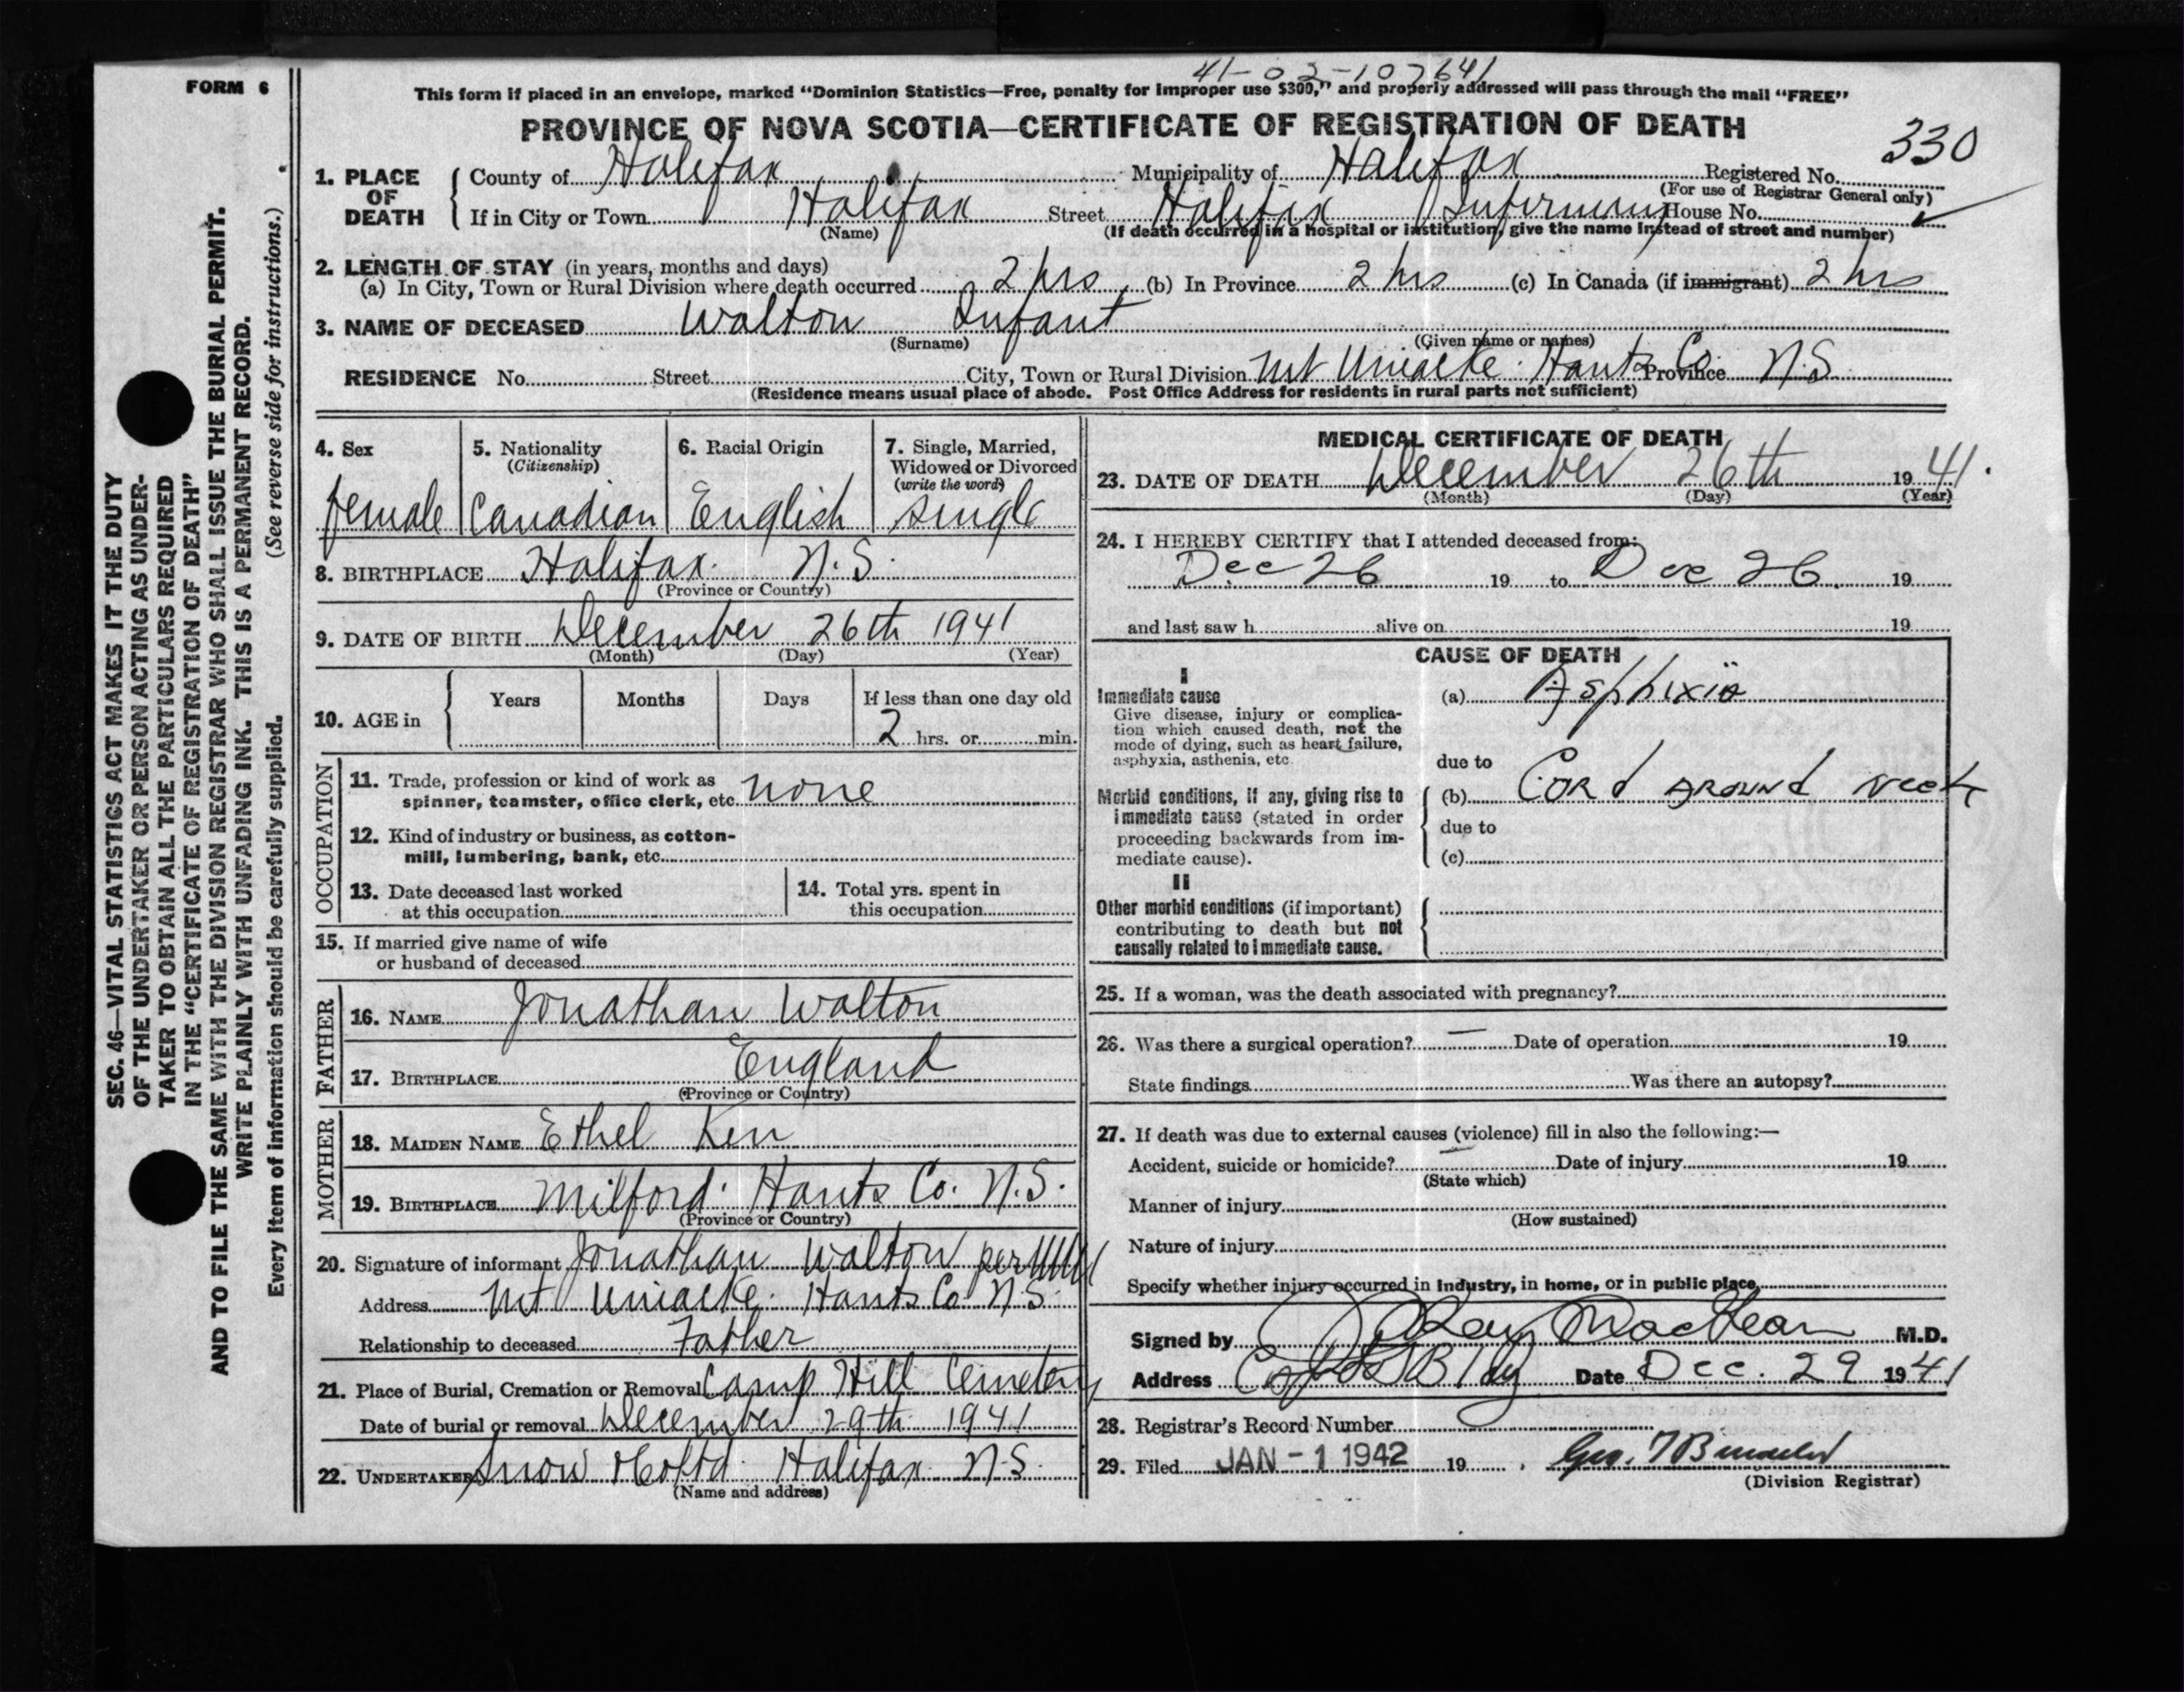 41-02-107641
FORM 6
This form if placed in an envelope, marked "Dominion Statistics—Free, penalty for improper use $300," and properly addressed will pass through the mail "FREE"
PROVINCE OF NOVA SCOTIA—CERTIFICATE OF REGISTRATION OF DEATH
330
1. PLACE OF DEATH
County of Halifax Municipality of Halifax Registered No.
(For use of Registrar General only)
If in City or Town Halifax Street Halifax Infirmary House No.
(Name) (If death occurred in a hospital or institution, give the name instead of street and number)
2. LENGTH OF STAY (in years, months and days)
(a) In City, Town or Rural Division where death occurred 2 hrs (b) In Province 2 hrs (c) In Canada (if immigrant) 2 hrs
3. NAME OF DECEASED Walton Infant
(Surname) (Given name or names)
RESIDENCE No. Street City, Town or Rural Division Mt Uniacke Hants Co. Province N.S.
(Residence means usual place of abode. Post Office Address for residents in rural parts not sufficient)
4. Sex
female
5. Nationality
(Citizenship)
Canadian
6. Racial Origin
English
7. Single, Married,
Widowed or Divorced
(write the word)
single
8. BIRTHPLACE Halifax. N.S.
(Province or Country)
9. DATE OF BIRTH December 26th 1941
(Month) (Day) (Year)
10. AGE in
Years Months Days If less than one day old
2 hrs. or min.
OCCUPATION
11. Trade, profession or kind of work as
spinner, teamster, office clerk, etc. none
12. Kind of industry or business, as cotton-
mill, lumbering, bank, etc.
13. Date deceased last worked
at this occupation
14. Total yrs. spent in
this occupation
15. If married give name of wife
or husband of deceased
FATHER
16. NAME Jonathan Walton
17. BIRTHPLACE England
(Province or Country)
MOTHER
18. MAIDEN NAME Ethel
19. BIRTHPLACE Milford. Hants Co. N.S.
(Province or Country)
20. Signature of informant Jonathan Walton per
Address Mt Uniacke. Hants Co N.S.
Relationship to deceased Father
21. Place of Burial, Cremation or Removal Camp Hill Cemetery
Date of burial or removal December 29th 1941
22. UNDERTAKER Snow & Co Ltd. Halifax N.S.
(Name and address)
MEDICAL CERTIFICATE OF DEATH
23. DATE OF DEATH December 26th 1941.
(Month) (Day) (Year)
24. I HEREBY CERTIFY that I attended deceased from:
Dec 26 19 to Dec 26. 19
and last saw h alive on 19
CAUSE OF DEATH
I
Immediate cause
Give disease, injury or complica-
tion which caused death, not the
mode of dying, such as heart failure,
asphyxia, asthenia, etc.
(a) Asphixia
due to
Morbid conditions, if any, giving rise to
immediate cause (stated in order
proceeding backwards from im-
mediate cause).
(b) Cord around neck
due to
(c)
II
Other morbid conditions (if important)
contributing to death but not
causally related to immediate cause.
25. If a woman, was the death associated with pregnancy?
26. Was there a surgical operation? — Date of operation 19
State findings Was there an autopsy?
27. If death was due to external causes (violence) fill in also the following:—
Accident, suicide or homicide? — Date of injury 19
(State which)
Manner of injury
(How sustained)
Nature of injury
Specify whether injury occurred in industry, in home, or in public place
Signed by M.D.
Address Bldg Date Dec. 29 1941
28. Registrar's Record Number
29. Filed JAN -1 1942 19 Geo.
(Division Registrar)
SEC. 46—VITAL STATISTICS ACT MAKES IT THE DUTY
OF THE UNDERTAKER OR PERSON ACTING AS UNDER-
TAKER TO OBTAIN ALL THE PARTICULARS REQUIRED
IN THE "CERTIFICATE OF REGISTRATION OF DEATH"
AND TO FILE THE SAME WITH THE DIVISION REGISTRAR WHO SHALL ISSUE THE BURIAL PERMIT.
WRITE PLAINLY WITH UNFADING INK. THIS IS A PERMANENT RECORD.
Every item of information should be carefully supplied. (See reverse side for instructions.)